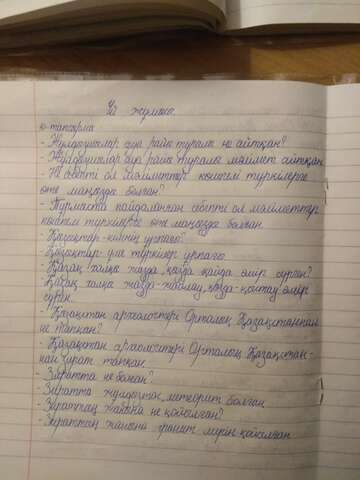 Үй жұмысы.
10-тапсырма
- Жұлдызшылар ауа райы туралы не айтқан?
- Жұлдызшылар ауа райы туралы мәлімет айтқан.
- Не себепті ол мәліметтер көшпелі түркілерге
өте маңызды болған?
- Тұрмыста пайдаланған себепті ол мәліметтер
көшпелі түркілерге өте маңызды болған.
- Қазақтар кімнің ұрпағы?
- Қазақтар ұлы түркілер ұрпағы.
- Қазақ халқы жазда, қазда қайда өмір сүрген?
- Қазақ халқы жазда-жайлау, қазда-қыстау өмір
сүрген.
- Қазақстан археологтері Орталық Қазақстаннан
не тапқан?
- Қазақстан археологтері Орталық Қазақстан-
нан зират тапқан.
- Зиратта не болған?
- Зиратта жұлдызтас, метеорит болған.
- Зираттың жанына не қойылған?
- Зираттың жанына гранит мүсін қойылған.